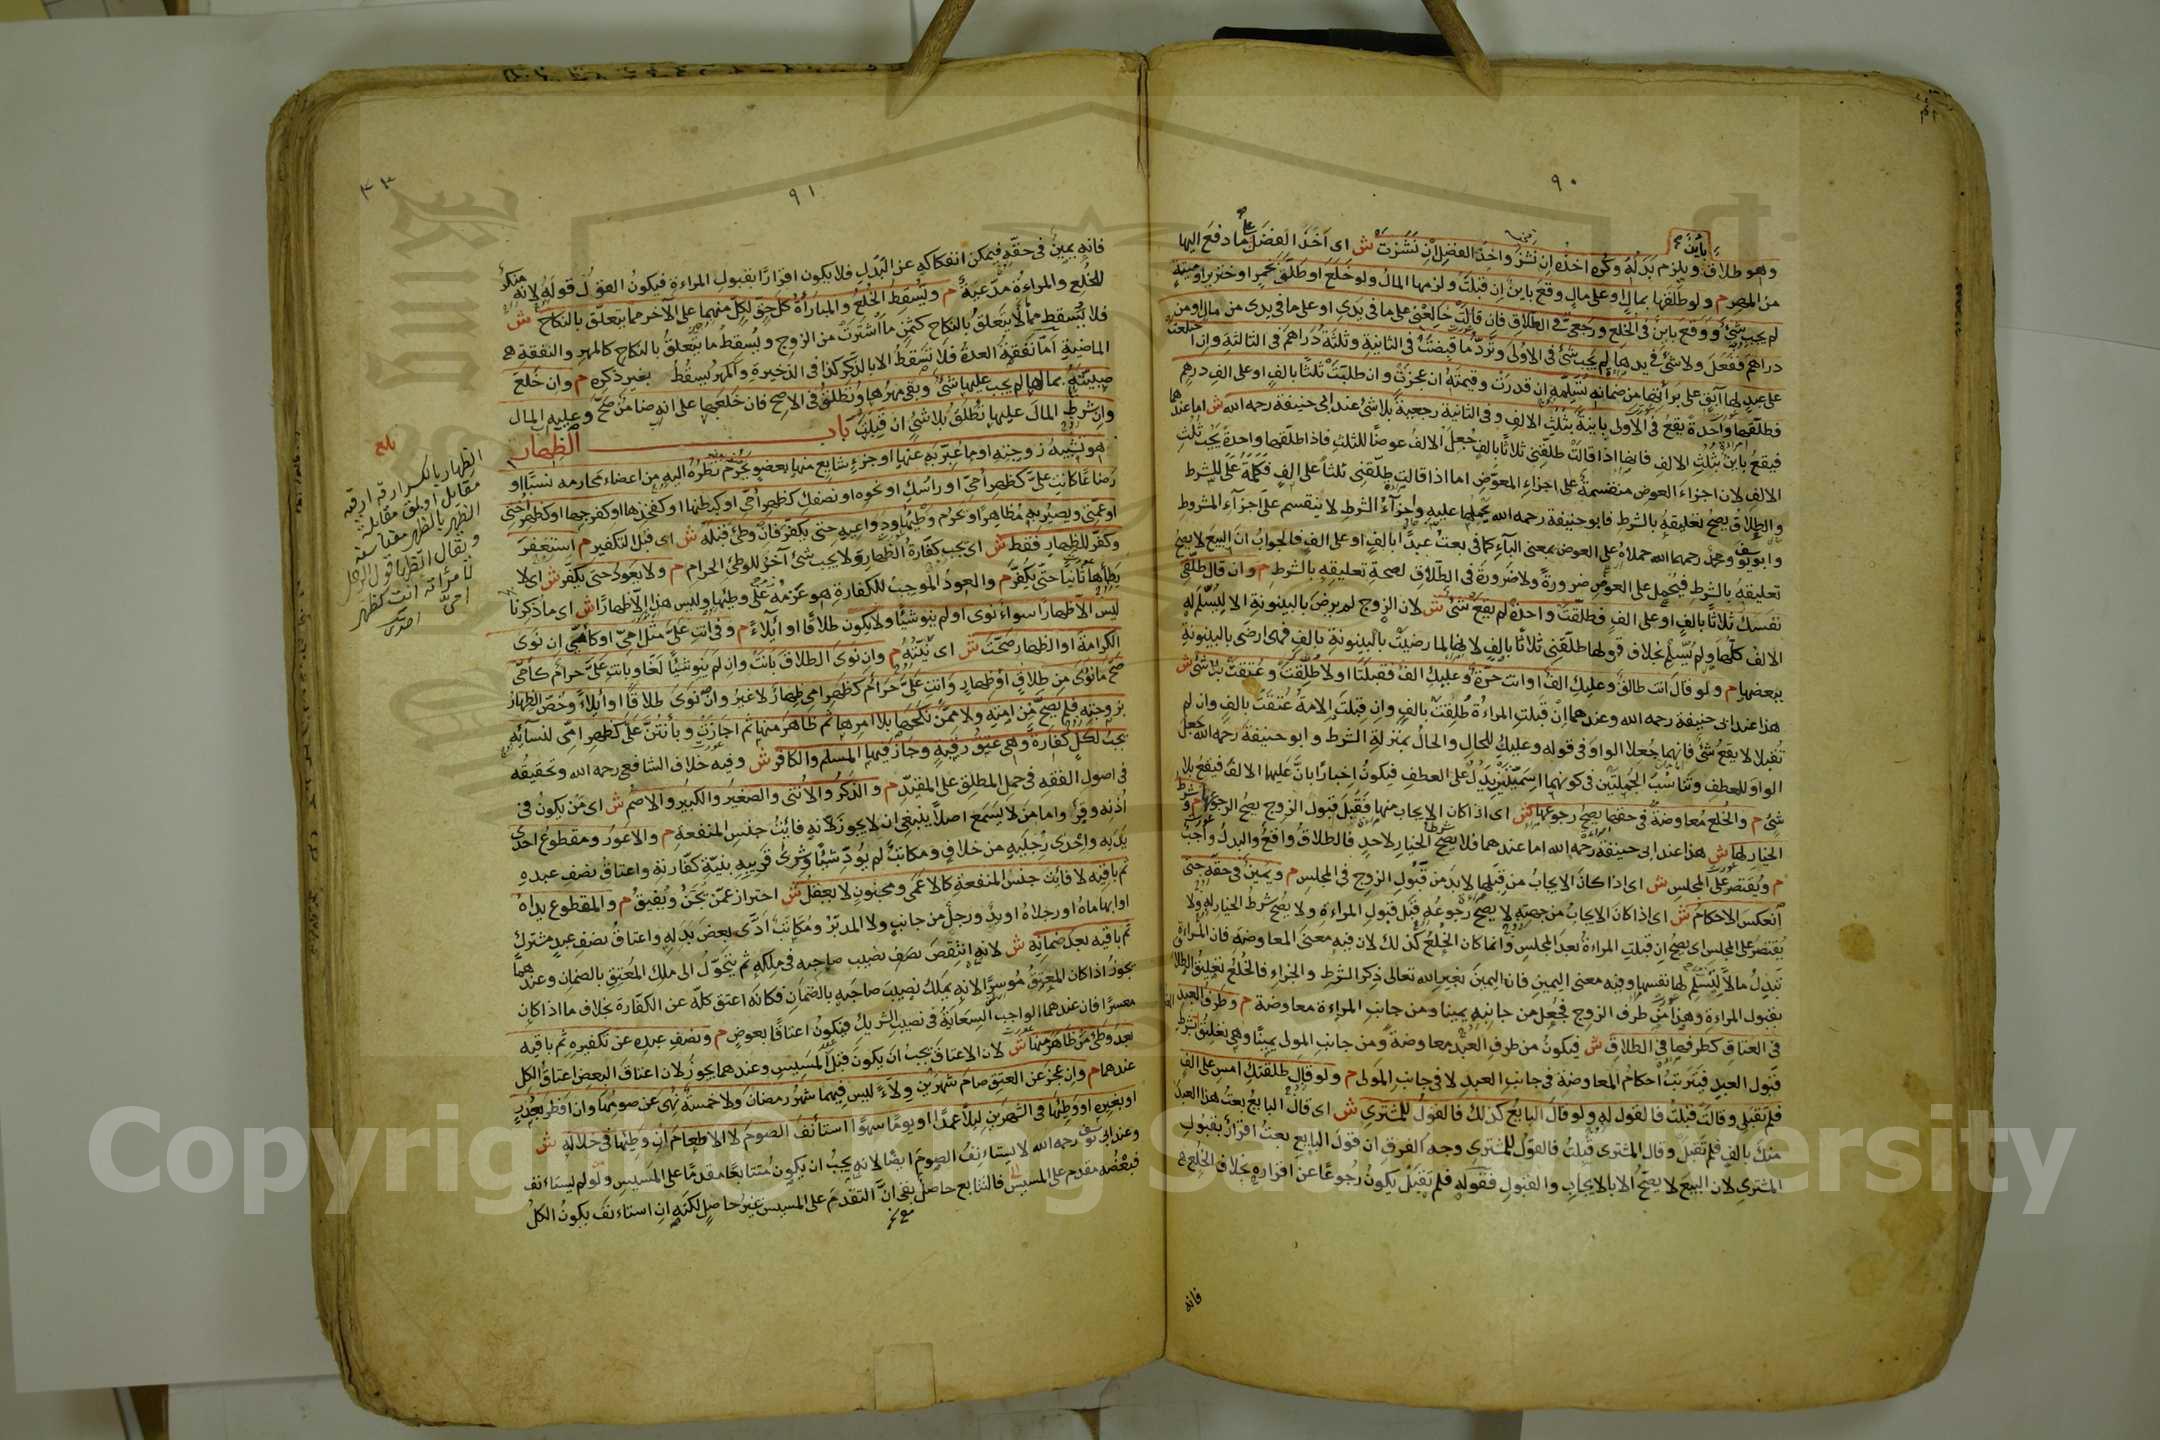 ٩٠
وهو طلاق بائن ويلزم بدله وكره اخذه ان نشز واخذ الفضل ان نشزت ش اى اخذ الفضل على ما دفع اليها
من المهر م ولو طلقها بمال او على مال وقع باين ان قبلت ولزمها المال ولو خلع او طلق بخمر او خنزير او ميتة
لم يجب شئ ووقع باين فى الخلع ورجعى فى الطلاق فان قالت خالعنى على ما فى يدى او على ما فى يدى من مال او من
دراهم ففعل ولا شئ فى يدها لم يجب شئ فى الاولى وترد ما قبضت فى الثانية وثلثة دراهم فى الثالثة وان اختلعت
على عبد لها آبق على برائتها من ضمانه تسلمه ان قدرت وقيمته ان عجزت وان طلبت ثلثا بالف او على الف درهم
فطلقها واحدة يقع فى الاولى باينة بثلث الالف وفى الثانية رجعية بلا شئ عند ابى حنيفة رحمه الله ش اما عندهما
فيقع باين بثلث الالف فانها اذا قالت طلقنى ثلاثا بالف جعل الالف عوضا للثلث فاذا طلقها واحدة يجب ثلث
الالف لان اجزاء العوض منقسمة على اجزاء المعوض اما اذا قالت طلقنى ثلثا على الف فكلمة على للشرط
والطلاق يصح تعليقه بالشرط فابو حنيفة رحمه الله يحملها عليه واجزاء الشرط لا ينقسم على اجزاء المشروط
وابو يوسف ومحمد رحمهما الله حملاه على العوض بمعنى الباء كما فى بعت عبدا بالف او على الف فالجواب ان البيع لا يصح
تعليقه بالشرط فيحمل على العوض ضرورة ولا ضرورة فى الطلاق لصحة تعليقه بالشرط م وان قال طلقى
نفسك ثلاثا بالف او على الف فطلقت واحدة لم يقع شئ ش لان الزوج لم يرض بالبينونة الا ليسلم له
الالف كلها ولم يسلم بخلاف قولها طلقنى ثلاثا بالف لانها لما رضيت بالبينونة بالف فهى ارضى بالبينونة
ببعضها م ولو قال انت طالق وعليك الف او انت حرة وعليك الف فقبلتا او لا طلقت وعتقت بلا شئ ش
هذا عند ابى حنيفة رحمه الله وعندهما ان قبلت المراءة طلقت بالف وان قبلت الامة عتقت بالف وان لم
تقبلا لا يقع شئ فانهما جعلا الواو فى قوله وعليك للحال والحال بمنزلة الشرط وابو حنيفة رحمه الله جعل
الواو للعطف وتناسب الجملتين فى كونهما اسميتين يدل على العطف فيكون اخبارا بان عليها الالف فيقع بلا
شئ م والخلع معاوضة فى حقها يصح رجوعها ش اى اذا كان الايجاب منها فقبل قبول الزوج يصح الرجوع م وشرط
الخيار لها ش هذا عند ابى حنيفة رحمه الله اما عندهما فلا يصح الخيار لاحد فالطلاق واقع والبدل واجب
م ويقتصر على المجلس ش اى اذا كان الايجاب من قبلها لا بد من قبول الزوج فى المجلس م ويمين فى حقه حتى
انعكس الاحكام ش اى اذا كان الايجاب من جهته لا يصح رجوعه قبل قبول المراءة ولا يصح شرط الخيار له ولا
يقتصر على المجلس اى يصح ان قبلت المراءة بعد المجلس وانما كان الخلع كذلك لان فيه معنى المعاوضة فان المراءة
تبذل مالا ليسلم لها نفسها وفيه معنى اليمين فان اليمين بغير الله تعالى ذكر الشرط والجزاء فالخلع تعليق الطلاق
بقبول المراءة وهذا من طرف الزوج فجعل من جانبه يمينا ومن جانب المراءة معاوضة م وطرف العبد
فى العتاق كطرفها فى الطلاق ش فيكون من طرف العبد معاوضة ومن جانب المولى يمينا وهى تعليق بشرط
قبول العبد فيترتب احكام المعاوضة فى جانب العبد لا فى جانب المولى م ولو قال طلقتك امس على الف
فلم تقبلى وقالت قبلت فالقول له ولو قال البايع كذلك فالقول للمشترى ش اى قال البايع بعت هذا العبد
منك بالف فلم تقبل وقال المشترى قبلت فالقول للمشترى وجه الفرق ان قول البايع بعت اقرار بقبول
المشترى لان البيع لا يصح الا بالايجاب والقبول فقوله فلم تقبل يكون رجوعا عن اقراره بخلاف الخلع
فانه
٩١
فانه يمين فى حقه فيمكن انفكاكه عن البدل فلا يكون اقرارا بقبول المراءة فيكون القول قوله لانه منكر
للخلع والمراءة مدعية م ويسقط الخلع والمباراة كل حق لكل منهما على الآخر مما يتعلق بالنكاح ش
فلا يسقط ما لا يتعلق بالنكاح كثمن ما اشترت من الزوج ويسقط ما يتعلق بالنكاح كالمهر والنفقة
الماضية اما نفقة العدة فلا تسقط الا بالذكر كذا فى الذخيرة والمهر يسقط بغير ذكره م وان خلع
صبيته بمالها لم يجب عليها شئ وبقى مهرها وتطلق فى الاصح فان خلعها على انه ضامن صح وعليه المال
وان شرط المال عليها تطلق بلا شئ ان قبلت باب الظهار
هو تشبيه زوجته او ما عبر به عنها او جزء شايع منها بعضو يحرم نظره اليه من اعضاء محارمه نسبا او
رضاعا كانت على كظهر امى او راسك او نحوه او نصفك كظهر امى او كبطنها او كفخذها او كفرجها او كظهر اختى
او عمتى ويصير به مظاهرا ويحرم وطئها ودواعيه حتى يكفر فان وطئ قبله ش اى قبل التكفير م استغفر
وكفر للظهار فقط ش اى يجب كفارة الظهار ولا يجب شئ آخر للوطئ الحرام م ولا يعود حتى يكفر ش اى لا
يطأها ثانيا حتى يكفر م والعود الموجب للكفارة هو عزمه على وطئها وليس هذا الا ظهارا ش اى ما ذكرنا
ليس الا ظهارا سواء نوى او لم ينو شيئا ولا يكون طلاقا او ايلاء م وفى انت على مثل امى او كامى ان نوى
الكرامة او الظهار صحت ش اى نيته م وان نوى الطلاق بانت وان لم ينو شيئا لغا وبانت على حرام كامى
صح ما نوى من طلاق او ظهار وانت على حرام كظهر امى ظهار لا غير وان نوى طلاقا او ايلاء وخص الظهار
بزوجته فلم يصح من امته ولا ممن نكحها بلا امرها ثم ظاهر منها ثم اجازت وبانتن على كظهر امى لنسائه
يجب لكل كفارة وهى عتق رقبة وجاز فيها المسلم والكافر ش وفيه خلاف الشافعى رحمه الله وتحقيقه
فى اصول الفقه فى حمل المطلق على المقيد م والذكر والانثى والصغير والكبير والاصم ش اى من يكون فى
اذنه وقر واما من لا يسمع اصلا ينبغى ان لا يجوز لانه فائت جنس المنفعة م والاعور ومقطوع احدى
يديه واحدى رجليه من خلاف ومكاتب لم يؤد شيئا وشرى قريبه بنية كفارته واعتاق نصف عبده
ثم باقيه لا فائت جنس المنفعة كالاعمى ومجنون لا يعقل ش احتراز عمن يجن ويفيق م والمقطوع يداه
او ابهاماه او رجلاه او يد ورجل من جانب ولا المدبر ومكاتب ادى بعض بدله واعتاق نصف عبد مشترك
ثم باقيه بعد ضمانه ش لانه انتقص نصف نصيب صاحبه فى ملكه ثم يتحول الى ملك المعتق بالضمان وعندهما
يجوز اذا كان المعتق موسرا لانه يملك نصيب صاحبه بالضمان فكانه اعتق كله عن الكفارة بخلاف ما اذا كان
معسرا فان عندهما الواجب السعاية فى نصيب الشريك فيكون اعتاقا بعوض م ونصف عبده عن تكفيره ثم باقيه
بعد وطئ من ظاهر منها ش لان الاعتاق يجب ان يكون قبل المسيس وعندهما يجوز لان اعتاق البعض اعتاق الكل
عندهما م وان عجز عن العتق صام شهرين ولاء ليس فيهما شهر رمضان ولا خمسة نهى عن صومها وان افطر بعذر
او بغيره او وطئها فى الشهرين ليلا عمدا او يوما سهوا استأنف الصوم لا الاطعام ان وطئها فى خلاله ش
وعند ابى يوسف رحمه الله لا يستاءنف الصوم ايضا لانه يجب ان يكون متتابعا مقدما على المسيس ولو لم يستاءنف
فبعضه مقدم على المسيس فالتتابع حاصل بقى ان التقدم على المسيس غير حاصل لكنه ان استاءنف يكون الكل
بلغ
الظهار بالكسر
الظهر بالظهر
ويقال الظهار قول الرجل
لامرأته انت كظهر
امى
Copyright © King Saud University